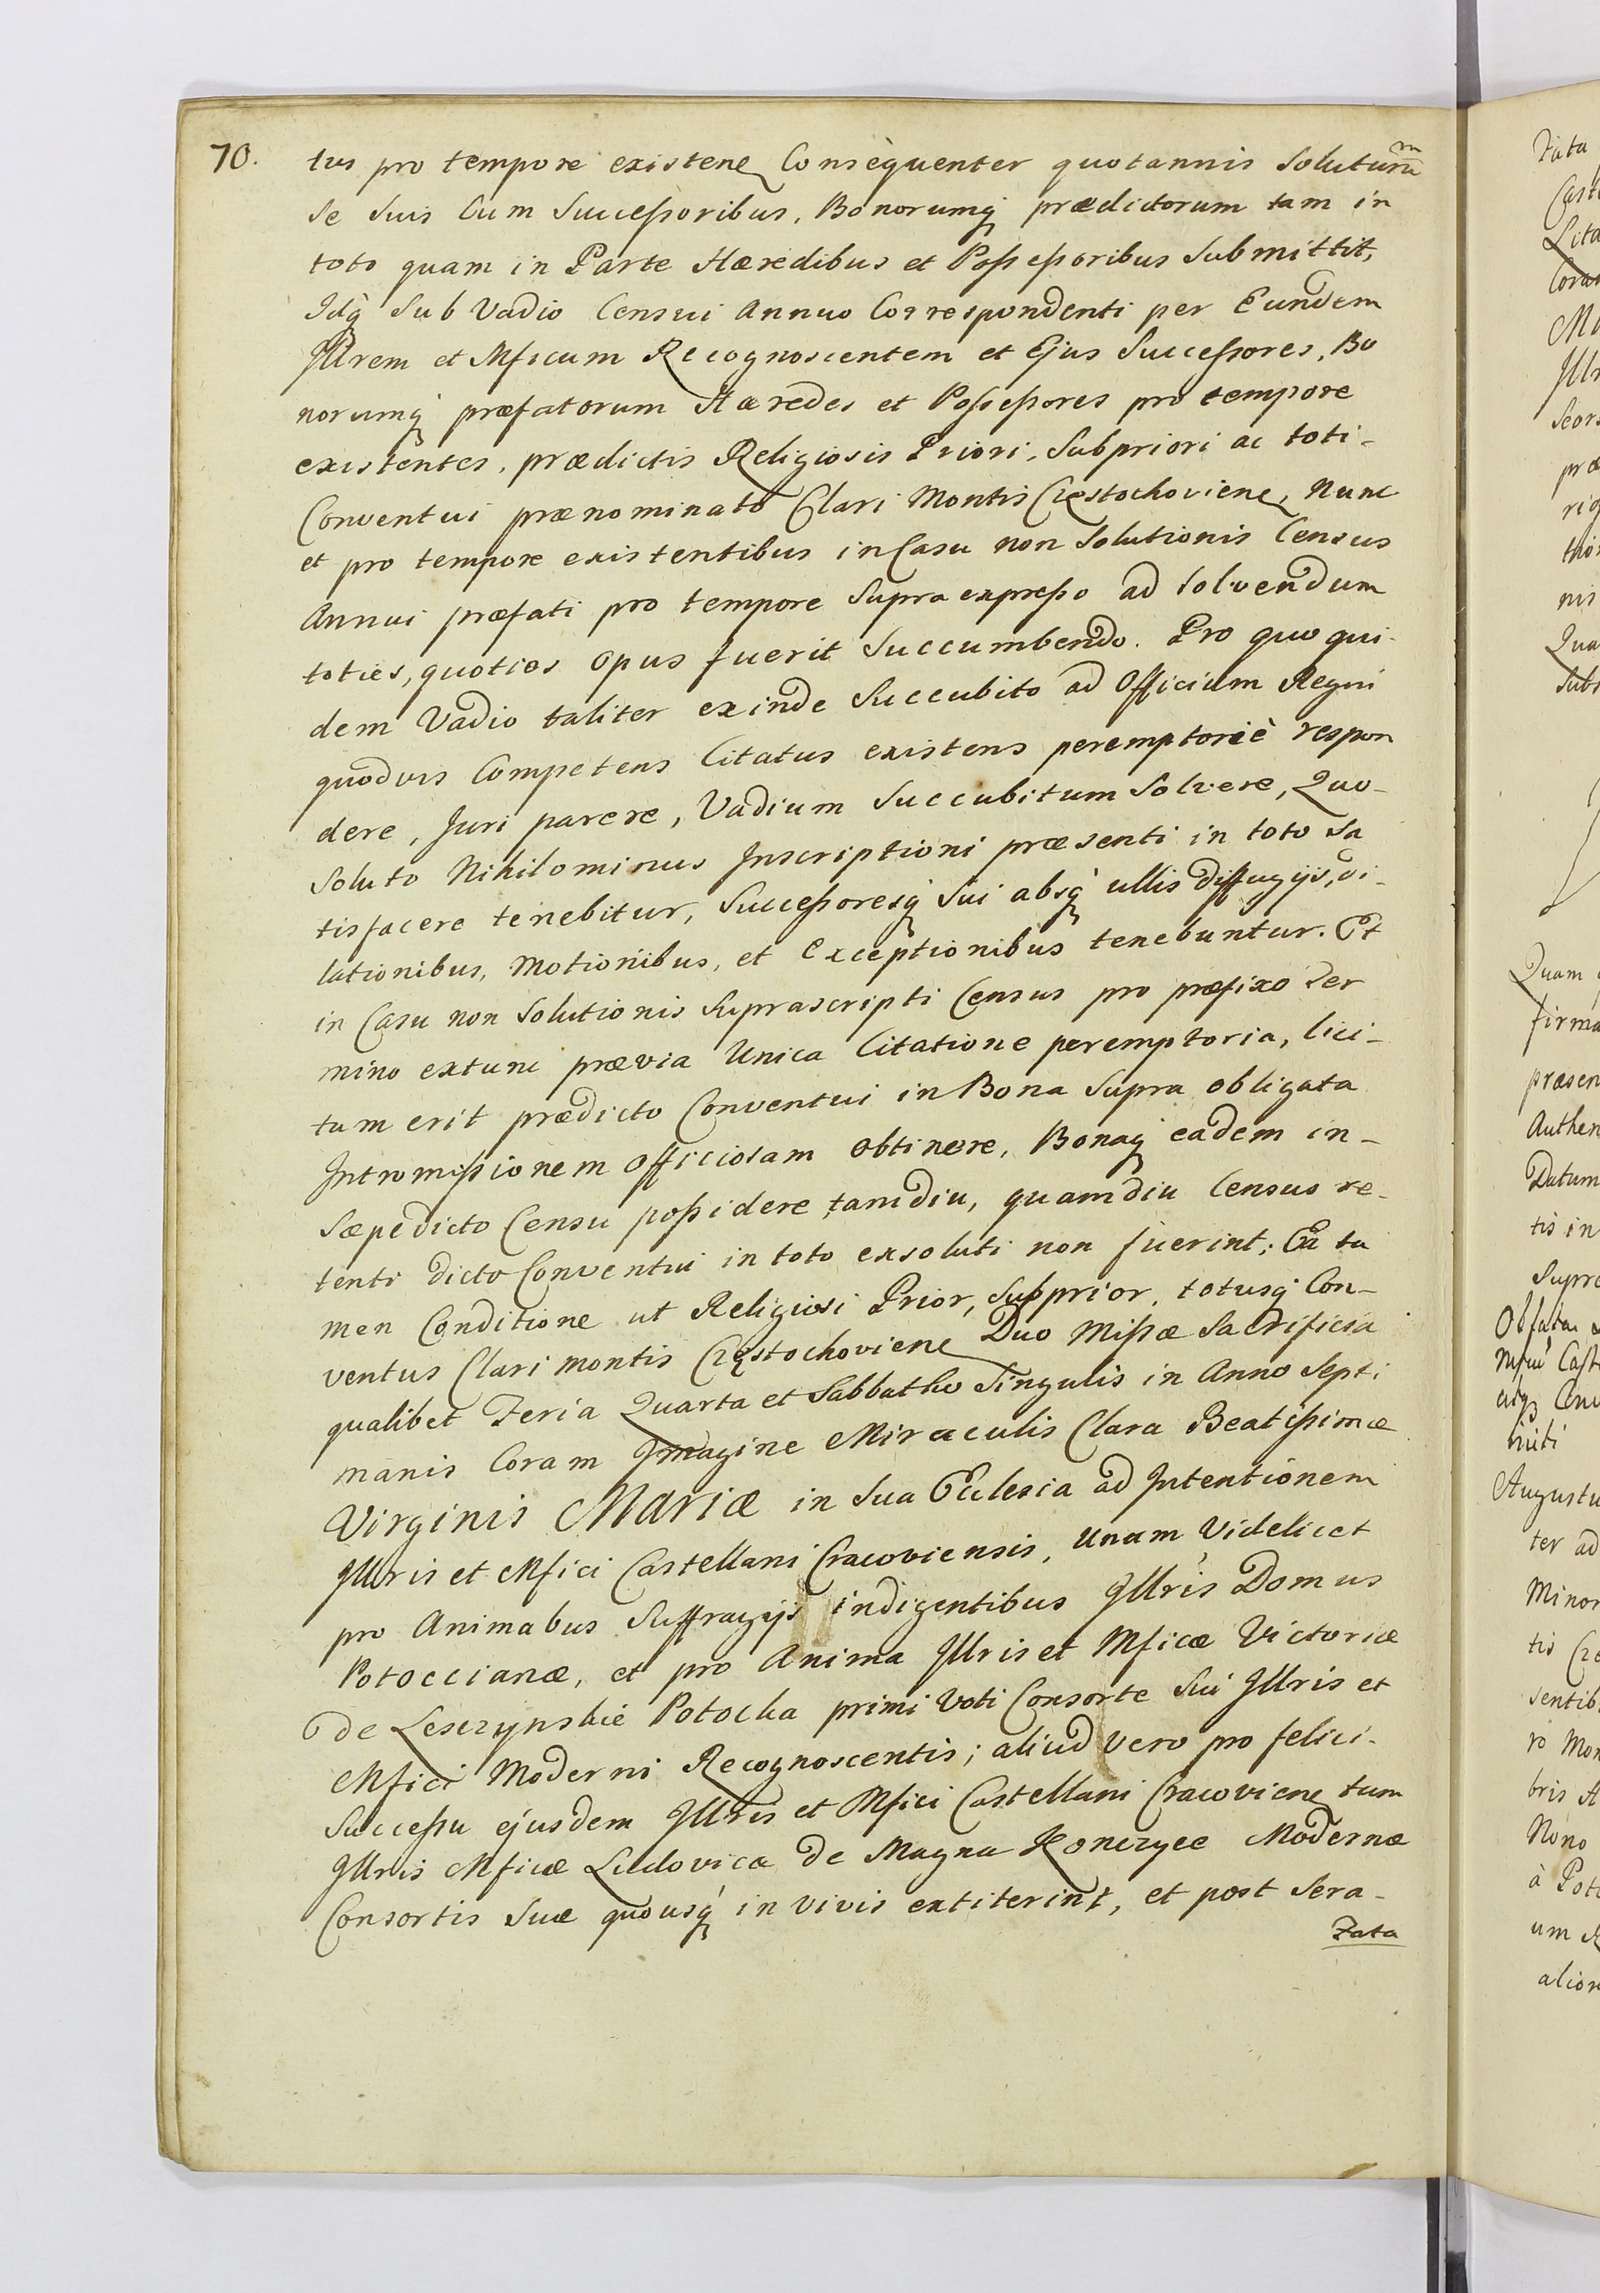 70.
tus pro tempore existen Consequenter quotannis Soluturum
Se Suis Cum Successoribus, Bonorumq; prædictorum tam in
toto quam in Parte Hæredibus et Possessoribus Submittit,
Idq; Sub Vadio Censui Annuo Correspondenti per Eundem
Jllrem et Mficum Recognoscentem et Ejus Successores, Bo
norumq; præfatorum Hæredes et Possessores pro tempore
existentes, prædictis Religiosis Priori, Subpriori ac toti-
Conventui prænominato Clari Montis Częstochovien, Nunc
et pro tempore existentibus in Casu non Solutionis Census
Annui præfati pro tempore Supra expresso ad Solvendum
toties, quoties opus fuerit Succumbendo. Pro quo qui-
dem Vadio taliter exinde Succubito ad Officium Regni
quodvis Competens Citatus existens peremptorie respon
dere, Juri parere, Vadium Succubitum Solvere, Quo-
Soluto Nihilominus Jnscriptioni præsenti in toto Sa
tisfacere tenebitur, Successoresq; Sui absq; ullis diffugijs, di-
lationibus, Motionibus, et Exceptionibus tenebuntur. Et
in Casu non Solutionis Suprascripti Census pro præfixo Ter
mino extunc prævia Unica Citatione peremptoria, lici-
tum erit prædicto Conventui in Bona Supra obligata
Jntromissionem Officiosam obtinere, Bonaq; eadem in-
Sæpedicto Censu possidere tamdiu, quamdiu Census re-
tenti dicto Conventui in toto exsoluti non fuerint; Ea ta
men Conditione ut Religiosi Prior, Subprior, totusq; Con-
ventus Clari montis Częstochovien Duo Missæ Sacrificia
qualibet Feria Quarta et Sabbatho Singulis in Anno Septi
manis Coram Jmagine Miraculis Clara Beatissimæ
Virginis Mariæ in Sua Ecclesia ad Jntentionem
Jllris et Mfici Castellani Cracoviensis, Unam Videlicet
pro Animabus Suffragijs indigentibus Jllris Domus
Potoccianæ, et pro Anima Jllris et Mficæ Victoriæ
de Leszczynskie Potocka primi Voti Consorte Sui Jllris et
Mfici Moderni Recognoscentis; aliud vero pro felici-
Successu ejusdem Jllris et Mfici Castellani Cracovien tum
Jllris Mficæ Ludovica de Magna Konczyce Modernæ
Consortis Suæ quousq; in vivis extiterint, et post Sera-
Fata